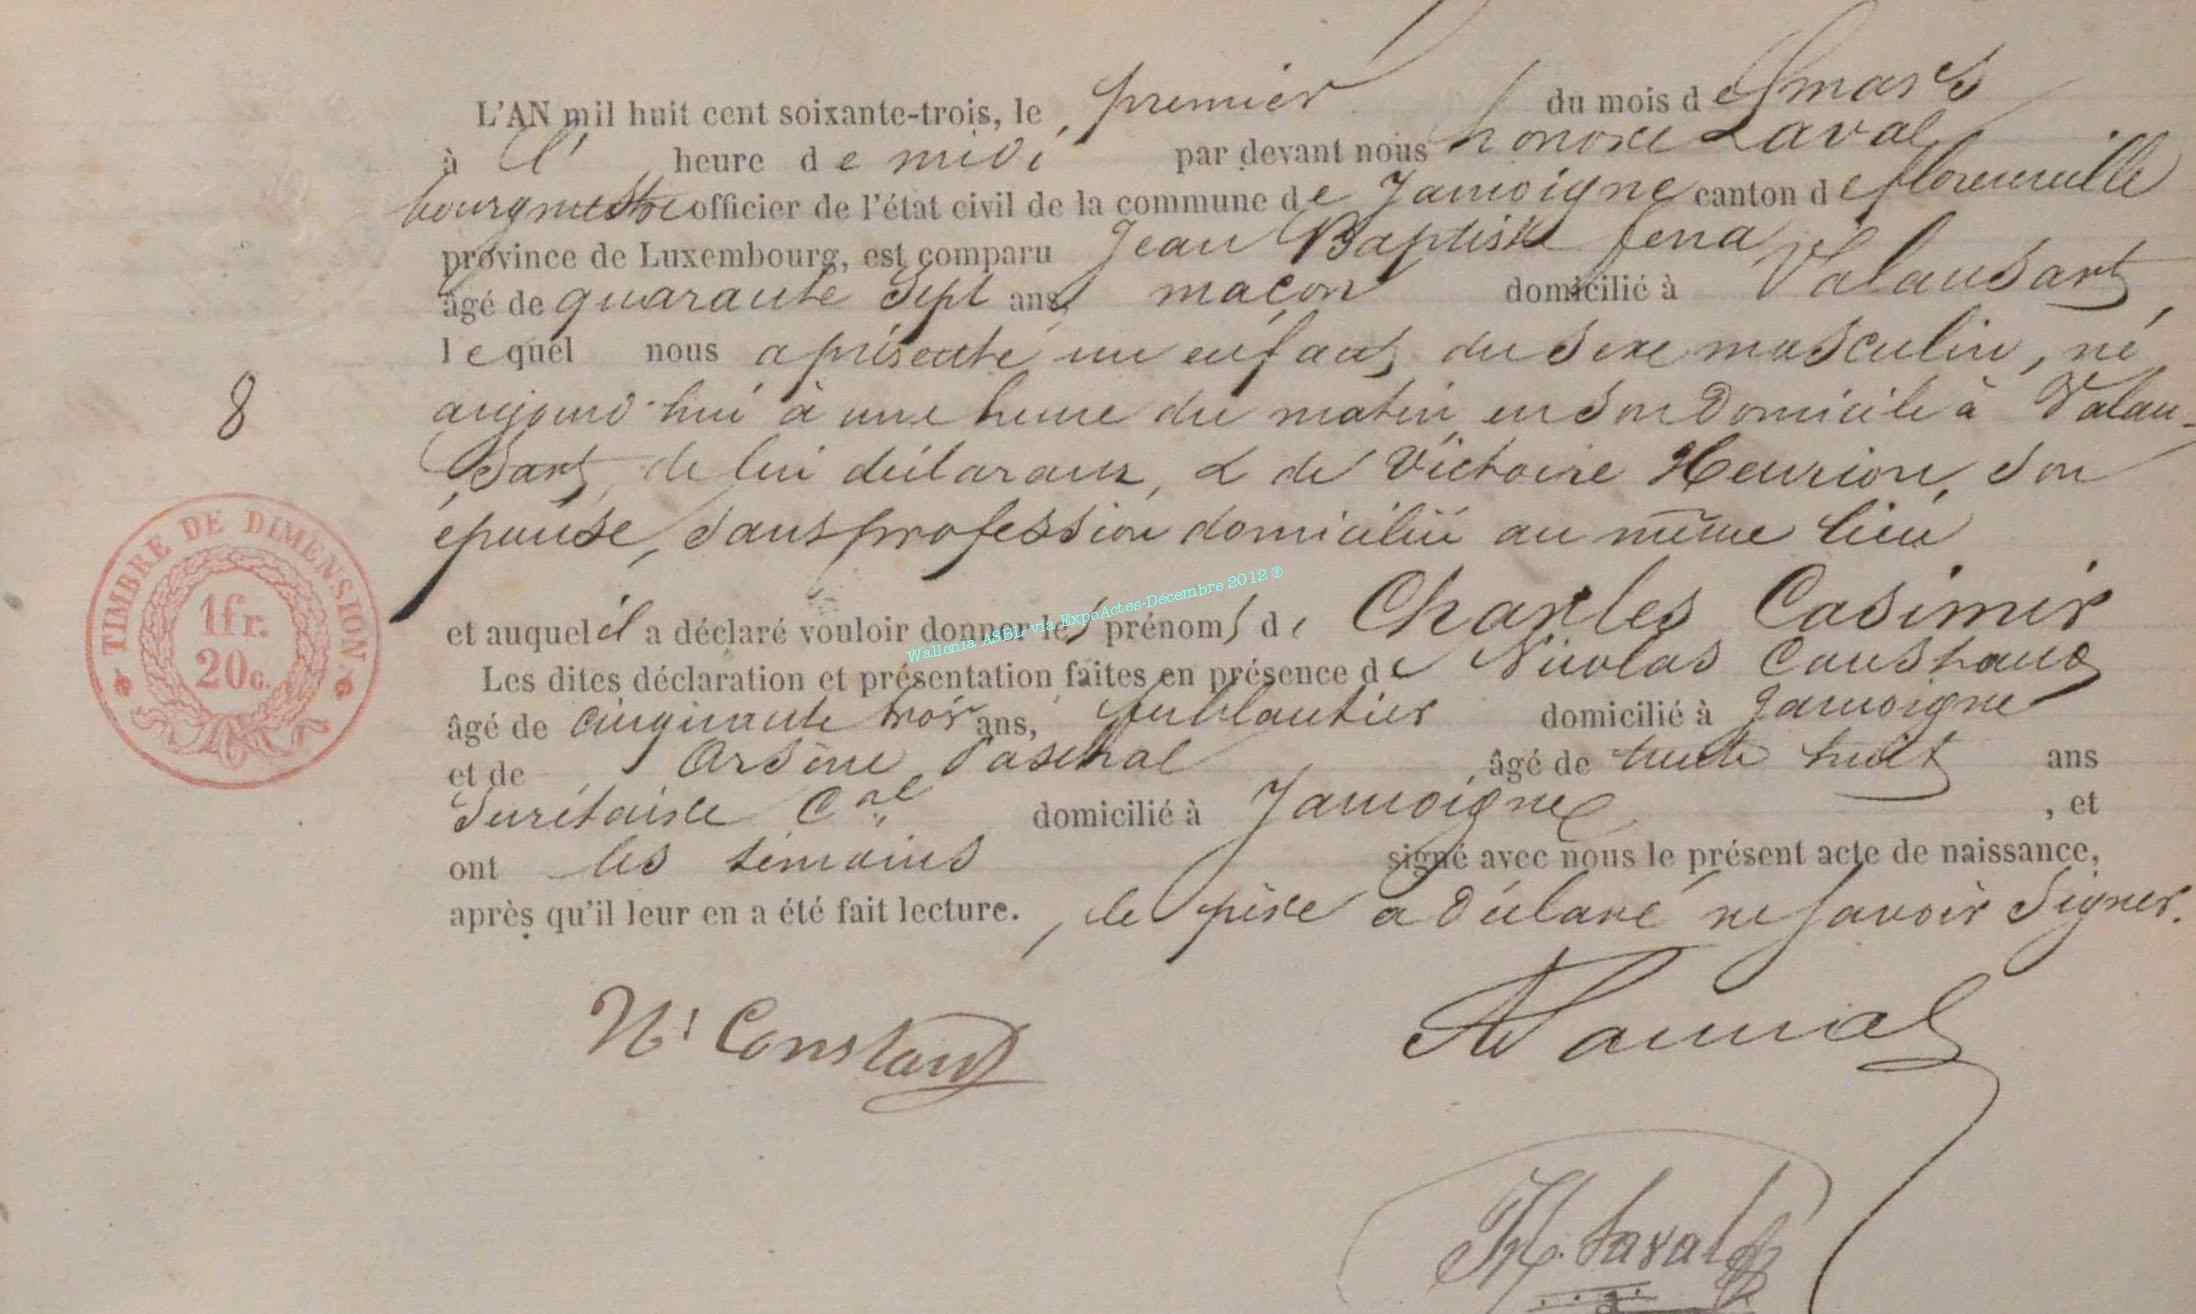 L'AN mil huit cent soixante-trois, le premier du mois de mars
à l' heure de midi par devant nous honoré Laval
bourgmestre officier de l'état civil de la commune de Jamoigne canton de florenville
province de Luxembourg, est comparu Jean Baptiste
âgé de quarante sept ans, maçon domicilié à Valansart,
lequel nous a présenté un enfant du sexe masculin, né
aujourd'hui à une heure du matin en son domicile à Valan-
sart, de lui déclarant, & de Victoire Henrion, son
épouse, sans profession domiciliée au même lieu
8
TIMBRE DE DIMENSION
1 fr.
20 c.
et auquel il a déclaré vouloir donner les prénoms de Charles Casimir
Wallonia ASBL via ExpoActes-Décembre 2012 ®
Les dites déclaration et présentation faites en présence de Nicolas Constant
âgé de cinquante trois ans, ferblantier domicilié à Jamoigne
et de Arsène Paschal, âgé de trente huit ans
secrétaire Cal domicilié à Jamoigne, et
ont les témoins signé avec nous le présent acte de naissance,
après qu'il leur en a été fait lecture., le père a déclaré ne savoir signer.
Ns Constant
H. Laval